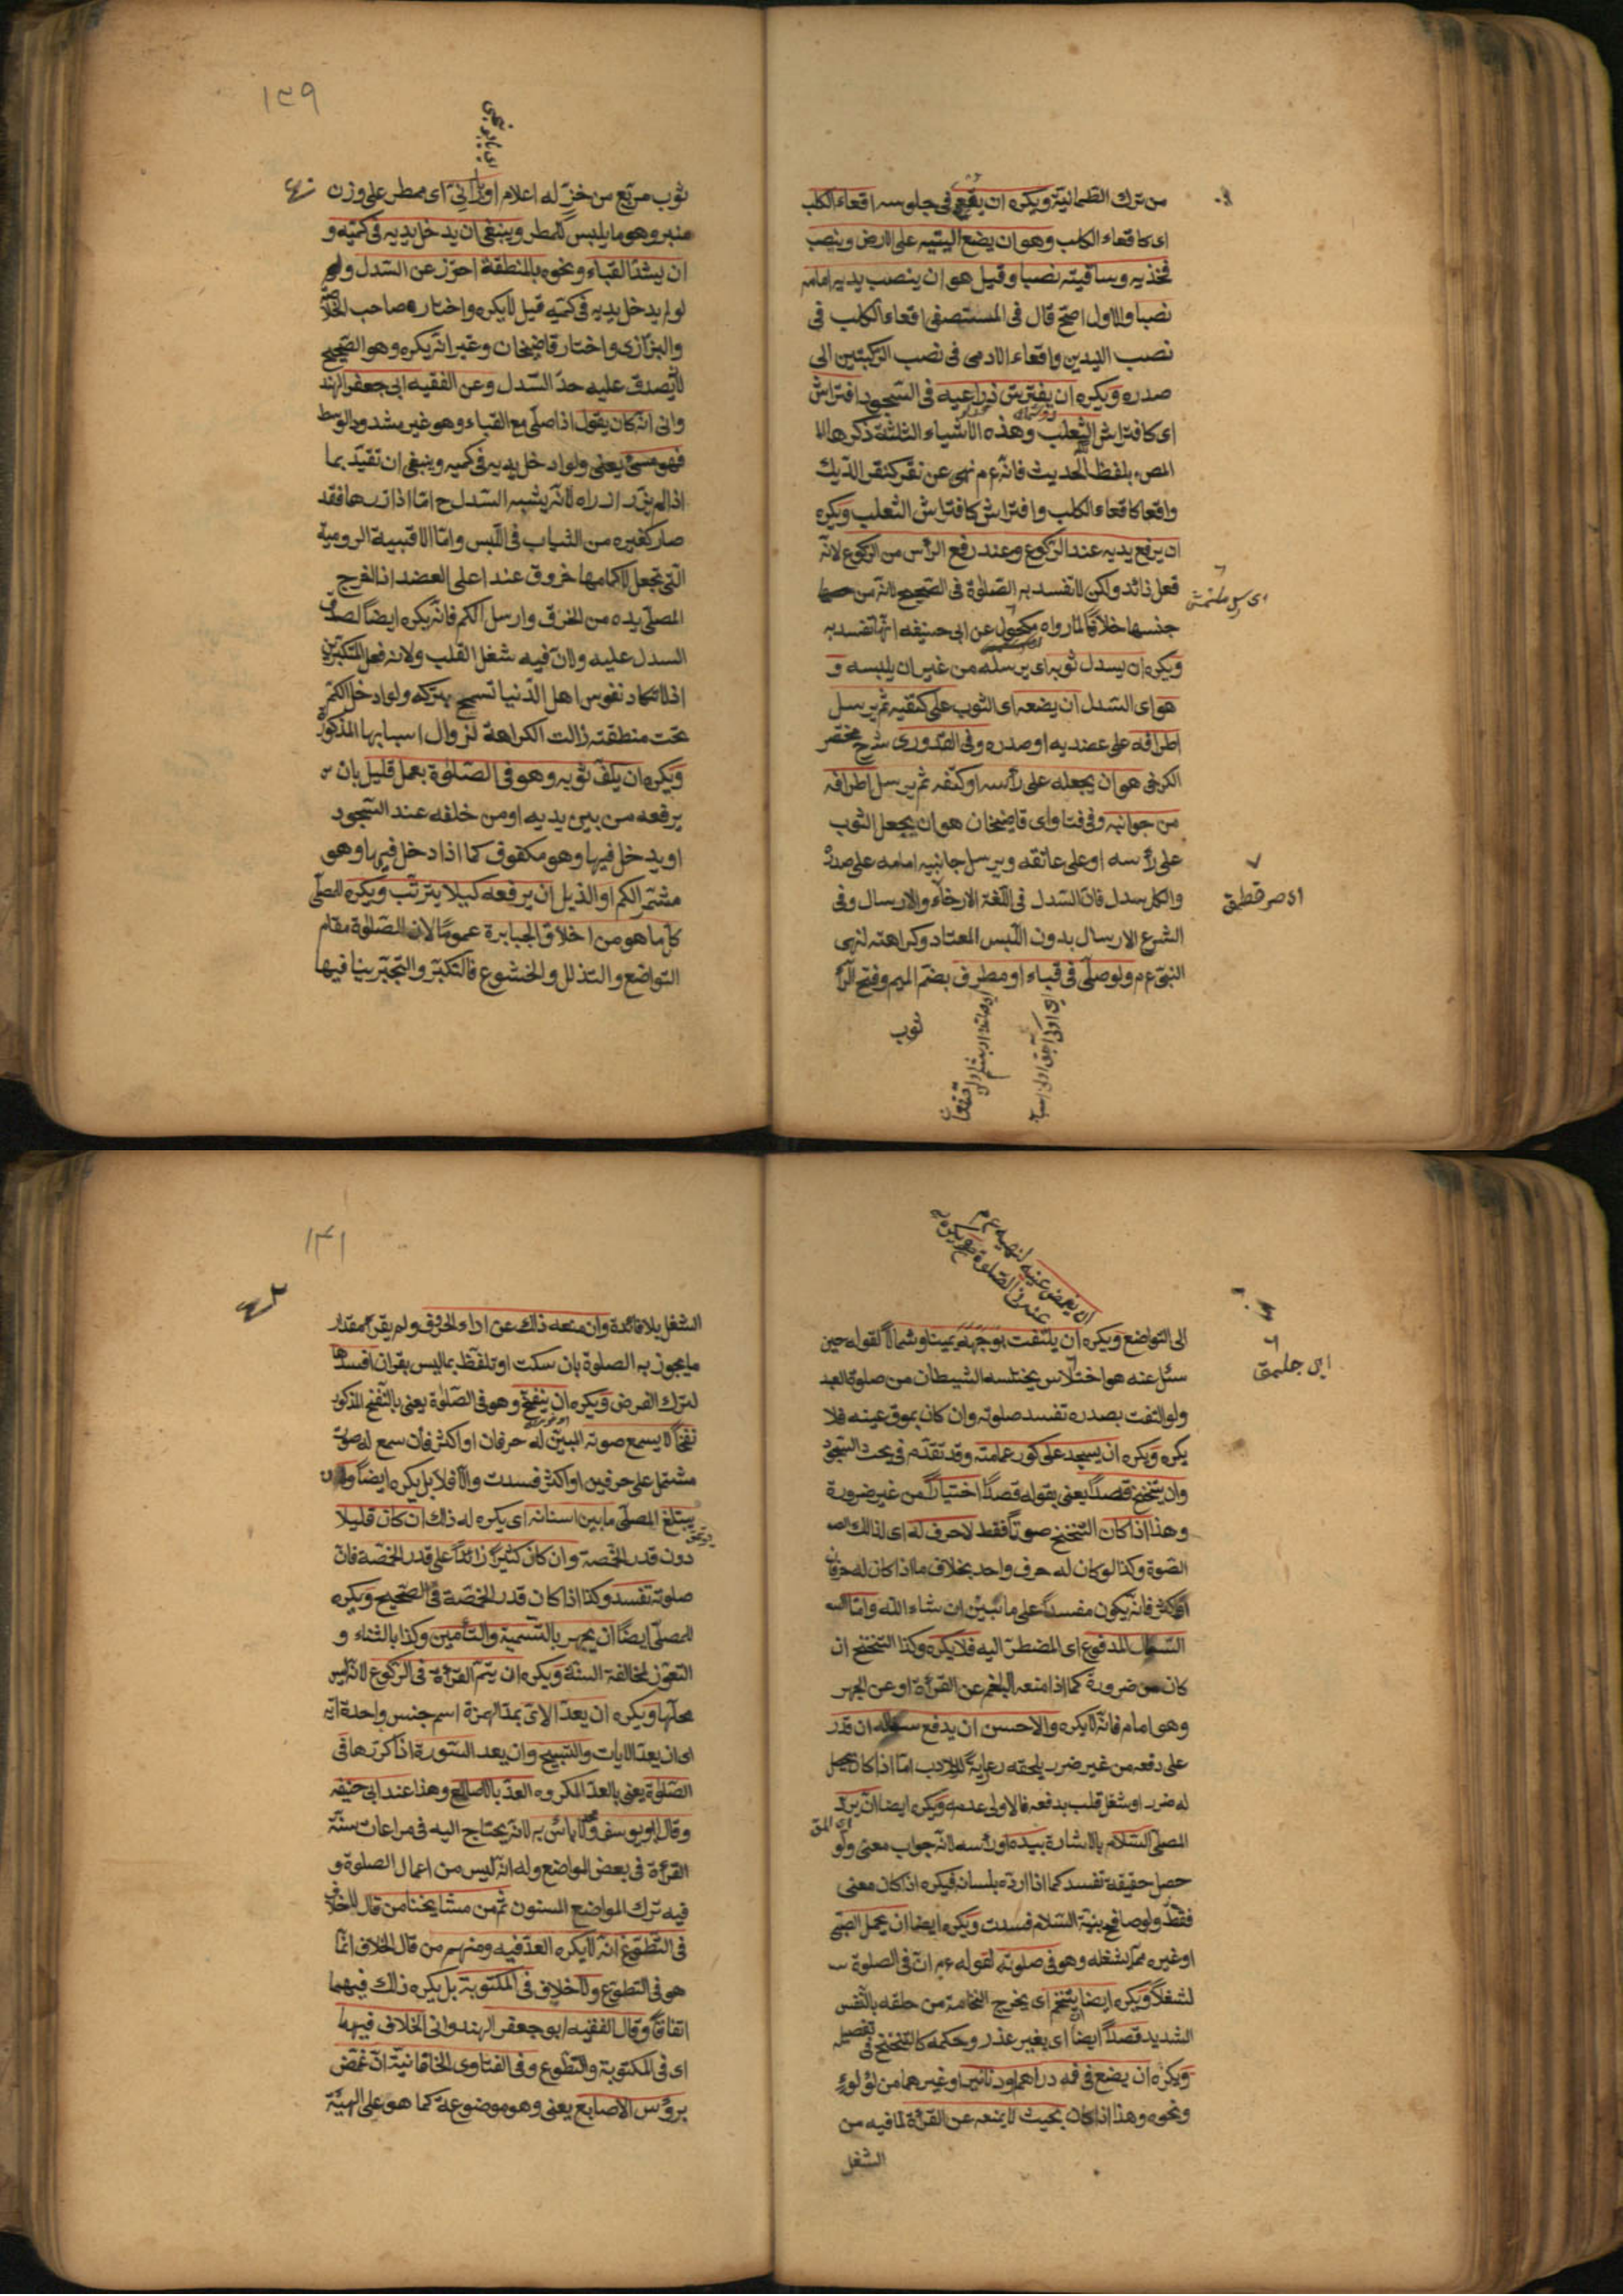 من ترك الطمانية ويكره ان يقعى فى جلوسه اقعاء الكلب
اى كاقعاء الكلب وهو ان يضع اليتيه على الارض وينصب
فخذيه وساقيته نصبا وقيل هو ان ينصب يديه امامه
نصبا والاول اصح قال فى المستصفى اقعاء الكلب فى
نصب اليدين واقعاء الادمى فى نصب الركبتين الى
صدره ويكره ان يفترش ذراعيه فى السجود افتراش
اى كافتراش الثعلب وهذه الاشياء الثلثة ذكرها
المص بلفظ الحديث فانه عم نهى عن نقر كنقر الديك
واقعا كاقعاء الكلب وافتراش كافتراش الثعلب ويكره
ان يرفع يديه عند الركوع وعند رفع الرأس من الركوع لانه
فعل زائد ولكن لا تفسد به الصلوة فى الصحيح لانه من
جنسها خلافا لما رواه مكحول عن ابى حنيفه انها تفسد به
ويكره ان يسدل ثوبه اى يرسله من غير ان يلبسه و
هو اى السدل ان يضعه اى الثوب على كتفيه ثم يرسل
اطرافه على عضديه او صدره وفى القدورى شرح مختصر
الكرخى هو ان يجعله على رأسه او كتفه ثم يرسل اطرافه
من جوانبه وفى فتاواى قاضيخان هو ان يجعل الثوب
على رأسه او على عاتقه ويرسل جانبيه امامه على صدره
والكل سدل فان السدل فى اللغة الارخاء والارسال وفى
الشرع الارسال بدون اللبس المعتاد وكراهته لنهى
النبى عم ولو صلى فى قباء او مطرف بضم الميم وفتح الرا
ثوب
١٣٩
ثوب مربع من خز له اعلام او بارانى اى ممطر على وزن
منبر وهو ما يلبس للمطر وينبغى ان يدخل يديه فى كميه و
ان يشد القباء ونحوه بالمنطقة احرز عن السدل ولو
لو لم يدخل يديه فى كميه قيل لا يكره واختاره صاحب الخلاصة
والبزازى واختار قاضيخان وغيره انه يكره وهو الصحيح
لانه يصدق عليه حد السدل وعن الفقيه ابى جعفر الهند
وانى انه كان يقول اذا صلى مع القباء وهو غير مشدود الوسط
فهو مسئ يعنى ولو ادخل يديه فى كميه وينبغى ان تقيد بما
اذا لم يزر ازراره لانه يشبه السدل ح اما اذا زرها فقد
صار كغيره من الثياب فى اللبس واما الاقبية الرومية
التى تجعل لاكمامها خروق عند اعلى العضد اذا اخرج
المصلى يده من الخرق وارسل الكم فانه يكره ايضا لصدق
السدل عليه ولان فيه شغل القلب ولانه فعل المتكبرين
اذ لا تكاد نفوس اهل الدنيا تسمح بتركه ولو ادخل الكم
تحت منطقته زالت الكراهة لزوال اسبابها المذكورة
ويكره ان يكف ثوبه وهو فى الصلوة بعمل قليل بان
يرفعه من بين يديه او من خلفه عند السجود
او يدخل فيها وهو مكفوف كما اذا دخل فيها وهو
مشمر الكم او الذيل ان يرفعه كيلا يترتب ويكره للمصلى
كل ما هو من اخلاق الجبابرة عموما لان الصلوة مقام
التواضع والتذلل والخشوع فالتكبر والتجبر ينافيها
ان يغمض عينيه لنهيه عم
الى التواضع ويكره ان يلتفت بوجهه يمينا وشمالا لقوله حين
سئل عنه هو اختلاس يختلسه الشيطان من صلوة العبد
ولو التفت بصدره تفسد صلوته وان كان بموق عينه فلا
يكره ويكره ان يسجد على كور عمامته وقد تقدم فى بحث السجود
وان يتنحنح قصدا يعنى بقوله قصدا اختيارا من غير ضرورة
وهذا اذا كان التنحنح صوتا فقط لا حرف له اى لذلك
الصوة وكذا لو كان له حرف واحد بخلاف ما اذا كان له حرفان
او اكثر فانه يكون مفسدا على ما تبين ان شاء الله واما
السعال المدفوع اى المضطر اليه فلا يكره وكذا التنحنح ان
كان من ضرورة كما اذا منعه البلغم عن القرأة او عن الجهر
وهو امام فانه لا يكره والاحسن ان يدفع سعاله ان قدر
على دفعه من غير ضرر يلحقه رعاية للادب اما اذا كان يحصل
له ضرر او شغل قلب بدفعه فالاولى عدمه ويكره ايضا ان يرد
المصلى السلام بالاشارة بيده او رأسه لانه جواب معنى ولو
حصل حقيقة تفسد كما اذا رده بلسانه فيكره اذا كان معنى
فقط ولو صافح بنية السلام فسدت ويكره ايضا ان يحمل الصبى
او غيره مما يشغله وهو فى صلوته لقوله عم ان فى الصلوة
لشغلا ويكره ايضا ان يتنخم اى يخرج النخامة من حلقه بالنفس
الشديد قصدا ايضا اى بغير عذر وحكمه كالتنحنح فى تفصيله
ويكره ان يضع فى فمه دراهم او دنانير او غيرهما من لؤلوء
ونحوه وهذا اذا كان بحيث لا يمنعه عن القرأة لما فيه من
الشغل
١٤١
الشغل بلا فائدة وان منعه ذلك عن اداء الحروف ولم يقرأ مقدار
ما يجوز به الصلوة بان سكت او تلفظ بما ليس بقران افسدها
لترك الفرض ويكره ان ينفخ وهو فى الصلوة يعنى بالنفخ المذكور
نفخا لا يسمع صوته المبين له حرفان او اكثر فان سمع له صوت
مشتمل على حرفين او اكثر فسدت والا فلا بل يكره ايضا وان
يبتلع المصلى ما بين اسنانه اى يكره له ذلك ان كان قليلا
دون قدر الحمصة وان كان كثيرا زائدا على قدر الحمصة فان
صلوته تفسد وكذا اذا كان قدر الحمصة فى الصحيح ويكره
للمصلى ايضا ان يجهر بالتسمية والتأمين وكذا بالثناء و
التعوذ لمخالفة السنة ويكره ان يتم القرأة فى الركوع لانه ليس
محلها ويكره ان يعد الاى بمد الهمزة اسم جنس واحدة اية
اى ان يعد الايات والتسبيح وان يعد السورة اذا كررها فى
الصلوة يعنى بالعد المكروه العد بالاصابع وهذا عند ابى حنيفه
وقال ابو يوسف ومحمد لا بأس به لانه يحتاج اليه فى مراعات سنة
القرأة فى بعض المواضع وله انه ليس من اعمال الصلوة و
فيه ترك المواضع المسنون ثم من مشايخنا من قال لا خلاف
فى التطوع انه لا يكره العد فيه ومنهم من قال الخلاف انما
هو فى التطوع ولا خلاف فى المكتوبة بل يكره ذلك فيهما
اتفاقا وقال الفقيه ابو جعفر الهندوانى الخلاف فيهما
اى فى المكتوبة والتطوع وفى الفتاوى الخاقانية ان غمض
برؤس الاصابع يعنى وهو موضوعة كما هو على الهيئة